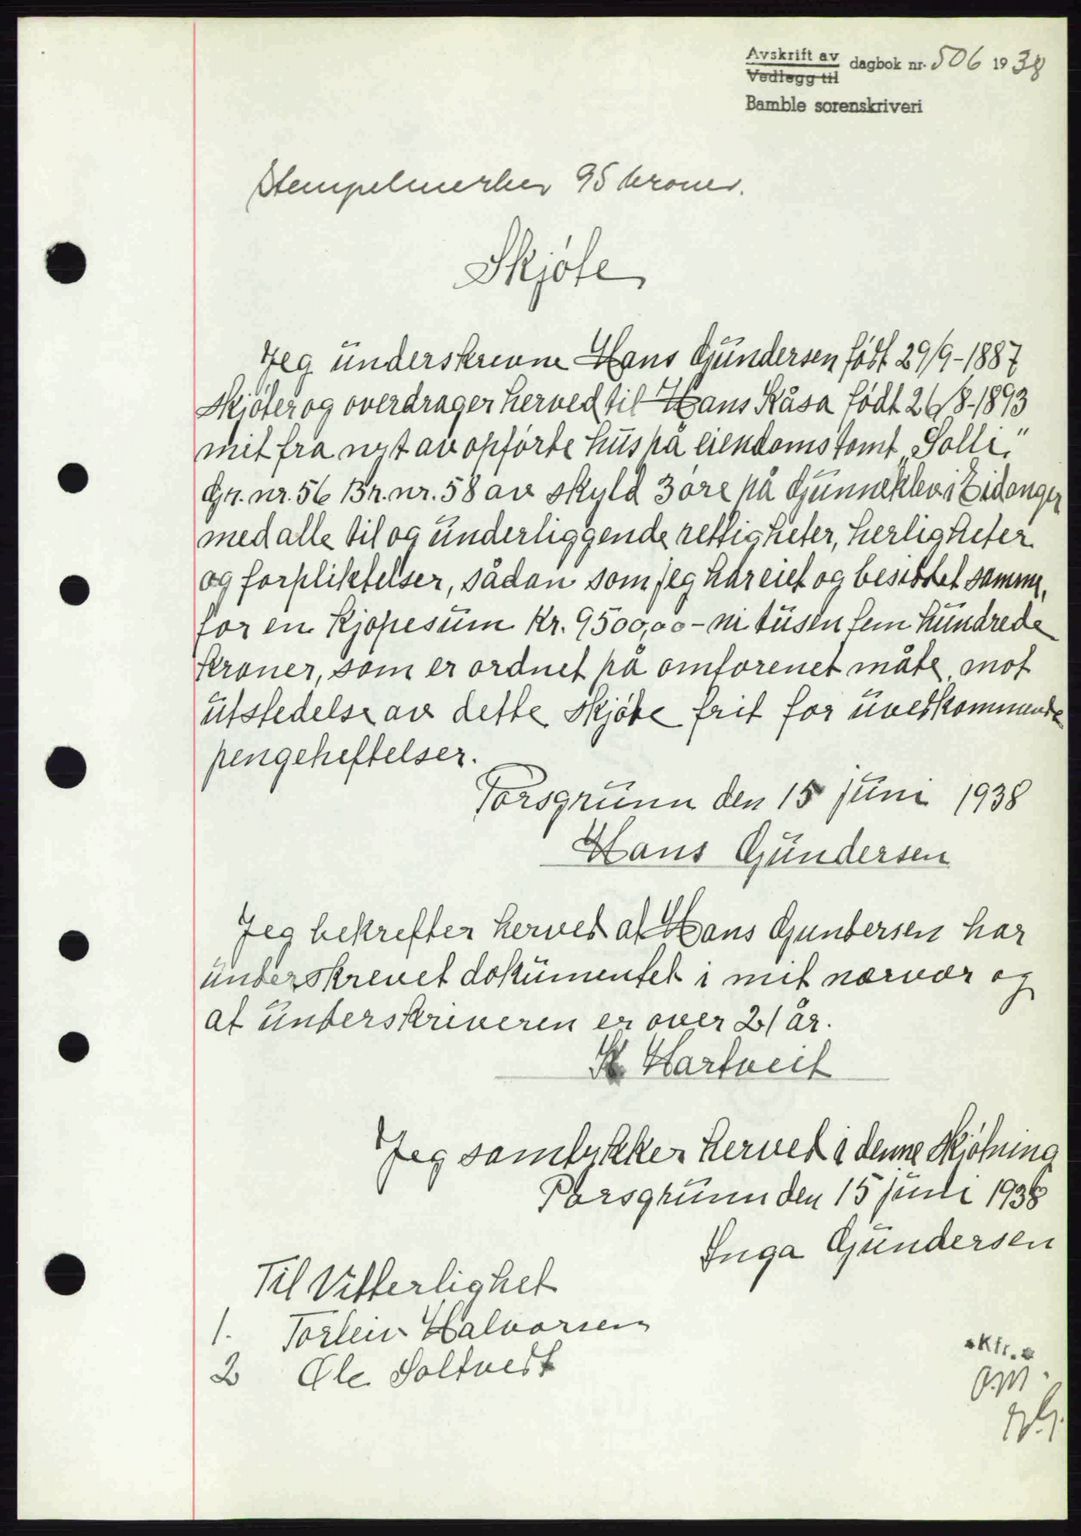 Avskrift av
Vedlegg til
dagbok nr. 506 1938
Bamble sorenskriveri
Stempelmerker 95 kroner.
Skjöte
Jeg underskrevne Hans Gundersen født 29/9-1887
skjöter og overdrager herved til Hans Kåsa født 26/8-1893
mit fra nyt av opförte hus på eiendomstomt „Solli”
Gr. nr. 56 Br. nr. 58 av skyld 3 öre på Gunneklev i Eidanger
med alle til og underliggende rettigheter, herligheter
og forpliktelser, sådan som jeg har eiet og besiddet samme,
for en kjöpesum Kr. 9500,00 - ni tusen fem hundrede
kroner, som er ordnet på omforenet måte, mot
utstedelse av dette skjöte frit for uvedkommende
pengeheftelser.
Porsgrunn den 15 juni 1938
Hans Gundersen
Jeg bekrefter herved at Hans Gundersen har
underskrevet dokumentet i mit nærvær og
at underskriveren er over 21 år.
K. Hartveit
Jeg samtykker herved i denne skjötning
Porsgrunn den 15 juni 1938
Inga Gundersen
Til Vitterlighet
1. Torleiv Halvorsen
2 Ole Soltvedt
Kfr.
O.M.